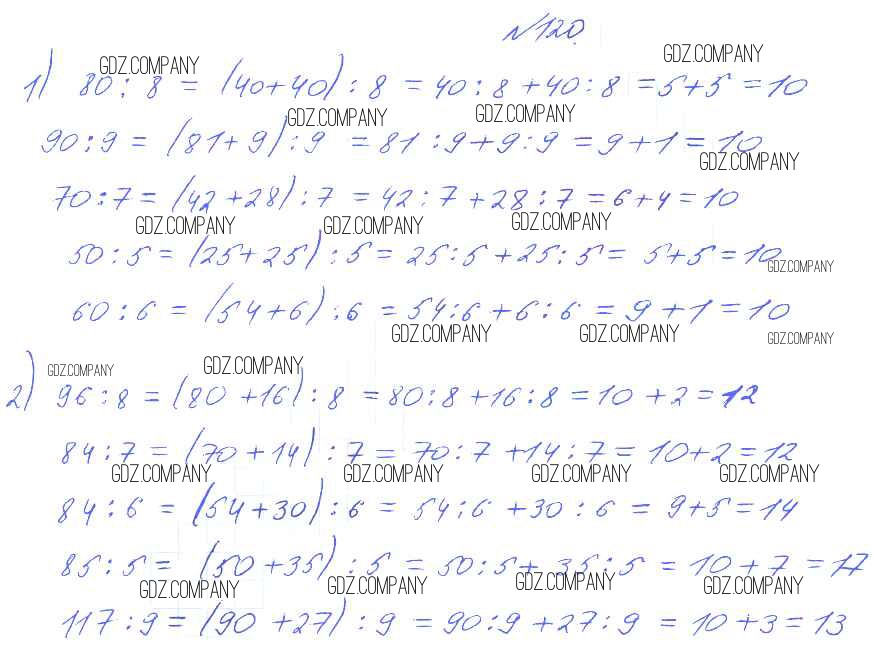 №120.
GDZ.COMPANY GDZ.COMPANY
1) 80 : 8 = (40+40) : 8 = 40 : 8 + 40 : 8 = 5+5 = 10
GDZ.COMPANY GDZ.COMPANY
90 : 9 = (81+9) : 9 = 81 : 9 + 9 : 9 = 9+1 = 10
GDZ.COMPANY
70 : 7 = (42+28) : 7 = 42 : 7 + 28 : 7 = 6+4 = 10
GDZ.COMPANY GDZ.COMPANY GDZ.COMPANY
50 : 5 = (25+25) : 5 = 25 : 5 + 25 : 5 = 5+5 = 10
GDZ.COMPANY
60 : 6 = (54+6) : 6 = 54 : 6 + 6 : 6 = 9+1 = 10
GDZ.COMPANY GDZ.COMPANY GDZ.COMPANY
GDZ.COMPANY GDZ.COMPANY
2) 96 : 8 = (80+16) : 8 = 80 : 8 + 16 : 8 = 10+2 = 12
84 : 7 = (70+14) : 7 = 70 : 7 + 14 : 7 = 10+2 = 12
GDZ.COMPANY GDZ.COMPANY GDZ.COMPANY GDZ.COMPANY
84 : 6 = (54+30) : 6 = 54 : 6 + 30 : 6 = 9+5 = 14
85 : 5 = (50+35) : 5 = 50 : 5 + 35 : 5 = 10+7 = 17
GDZ.COMPANY GDZ.COMPANY GDZ.COMPANY GDZ.COMPANY
117 : 9 = (90+27) : 9 = 90 : 9 + 27 : 9 = 10+3 = 13